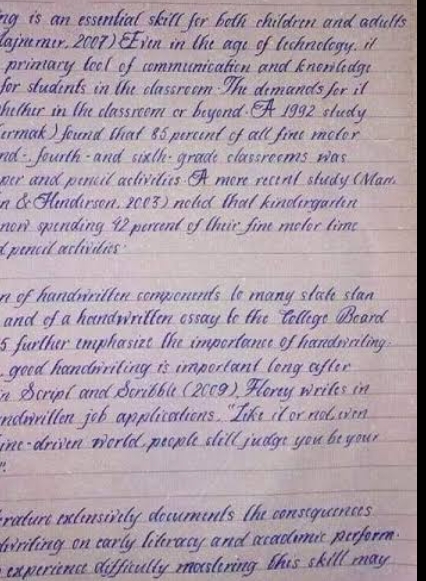 ng is an essential skill for both children and adults
ajnemer, 2007) Even in the age of technology, it
primary tool of communication and knowledge
for students in the classroom. The demands for it
hether in the classroom or beyond. A 1992 study
ermak) found that 85 percent of all fine motor
nd-, fourth- and sixth- grade classrooms was
per and pencil activities. A more recent study (Marr,
n & Henderson, 2003) noted that kindergarten
now spending 42 percent of their fine motor time
d pencil activities.
n of handwritten components to many state stan
and of a handwritten essay to the College Board
5 further emphasize the importance of handwriting.
, good handwriting is important long after
n Script and Scribble (2009), Florey writes in
ndwritten job applications, "Like it or not, even
ine-driven world, people still judge you be your
".
erature extensively documents the consequences
dwriting on early literacy and academic perform-
experience difficulty mastering this skill may